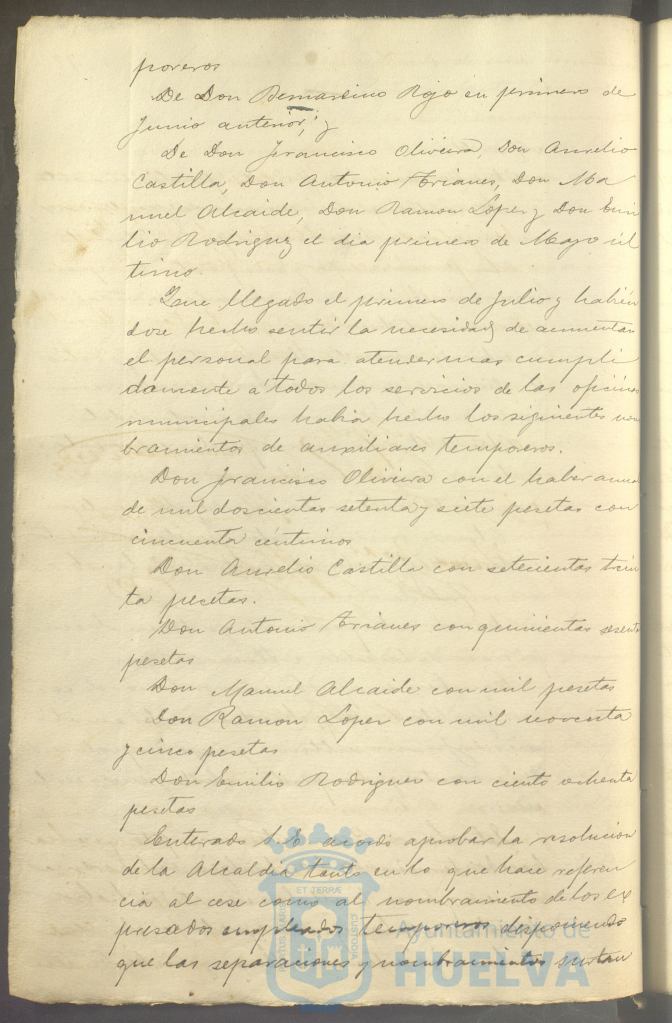 poreros
De Don Bernardino Rojo en primero de
Junio anterior; y
De Don Francisco Oliveira, Don Aurelio
Castilla, Don Antonio Arianes, Don Ma
nuel Alcaide, Don Ramon Lopez y Don Emi
lio Rodriguez el dia primero de Mayo úl
timo.
Que llegado el primero de Julio y habién
dose hecho sentir la necesidad de aumentar
el personal para atender mas cumpli
damente á todos los servicios de las oficinas
municipales habia hecho los siguientes nom
bramientos de auxiliares temporeros.
Don Francisco Oliveira con el haber anual
de mil doscientas setenta y siete pesetas con
cincuenta céntimos
Don Aurelio Castilla con setecientas trein
ta pesetas.
Don Antonio Arianes con quinientas
pesetas
Don Manuel Alcaide con mil pesetas
Don Ramon Lopez con mil noventa
y cinco pesetas
Don Emilio Rodriguez con ciento ochenta
pesetas
Enterado S. E. acordó aprobar la resolucion
de la Alcaldia tanto en lo que hace referen
cia al cese como al nombramiento de los ex
presados empleados temporeros disponiendo
que las separaciones y nombramientos surtan
ET TERRÆ
CUSTODIA
Ayuntamiento de
HUELVA